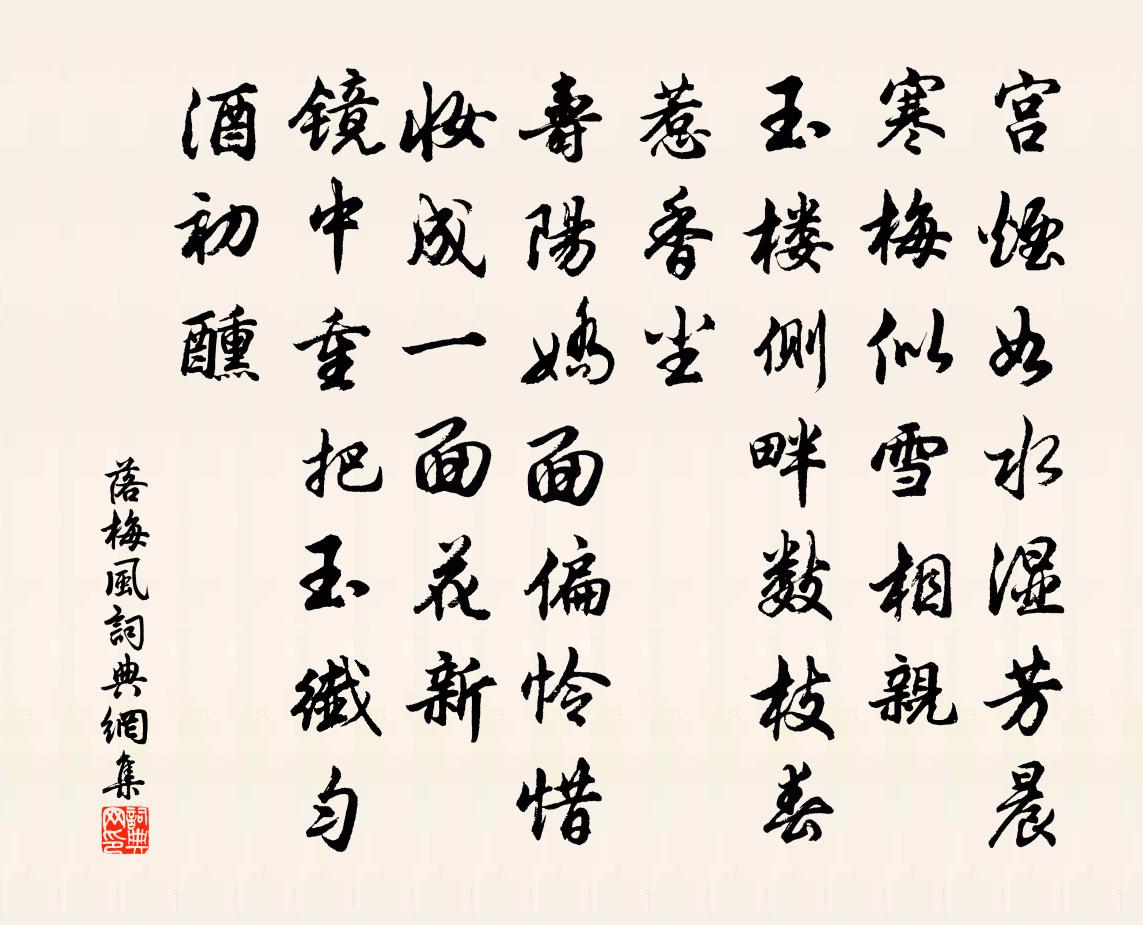 宫煙如水濕芳晨
寒梅似雪相親
玉楼側畔數枝春
惹香尘
壽陽嬌面偏怜惜
妝成一面花新
镜中重把玉纖匀
酒初醺
落梅風詞典網集
詞典网印